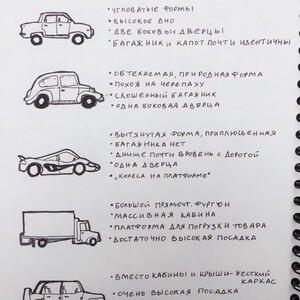 • Угловатые формы
• Высокое дно
• Две боковых дверцы
• Багажник и капот почти идентичны
• Обтекаемая, природная форма
• Похож на черепаху
• Скошенный багажник
• Одна боковая дверца
• Вытянутая форма, приплющенная
• Багажника нет
• Днище почти вровень с дорогой
• Одна дверца
• „Колеса на платформе"
• Большой прямоуг. фургон
• Массивная кабина
• Платформа для погрузки товара
• Достаточно высокая посадка
• Вместо кабины и крыши-жесткий
каркас
• Очень высокая посадка